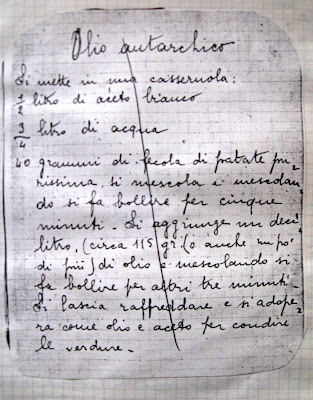 Olio autarchico
Si mette in una casseruola:
1/2 litro di aceto bianco
3/4 litro di acqua
40 grammi di fecola di patate pu=
rissima, si mescola e mescolan=
do si fa bollire per cinque
minuti. Si aggiunge un deci=
litro, (circa 115 gr. (o anche un po'
di più) di olio e mescolando si
fa bollire per altri tre minuti.
Si lascia raffreddare e si adope=
ra come olio e aceto per condire
le verdure.